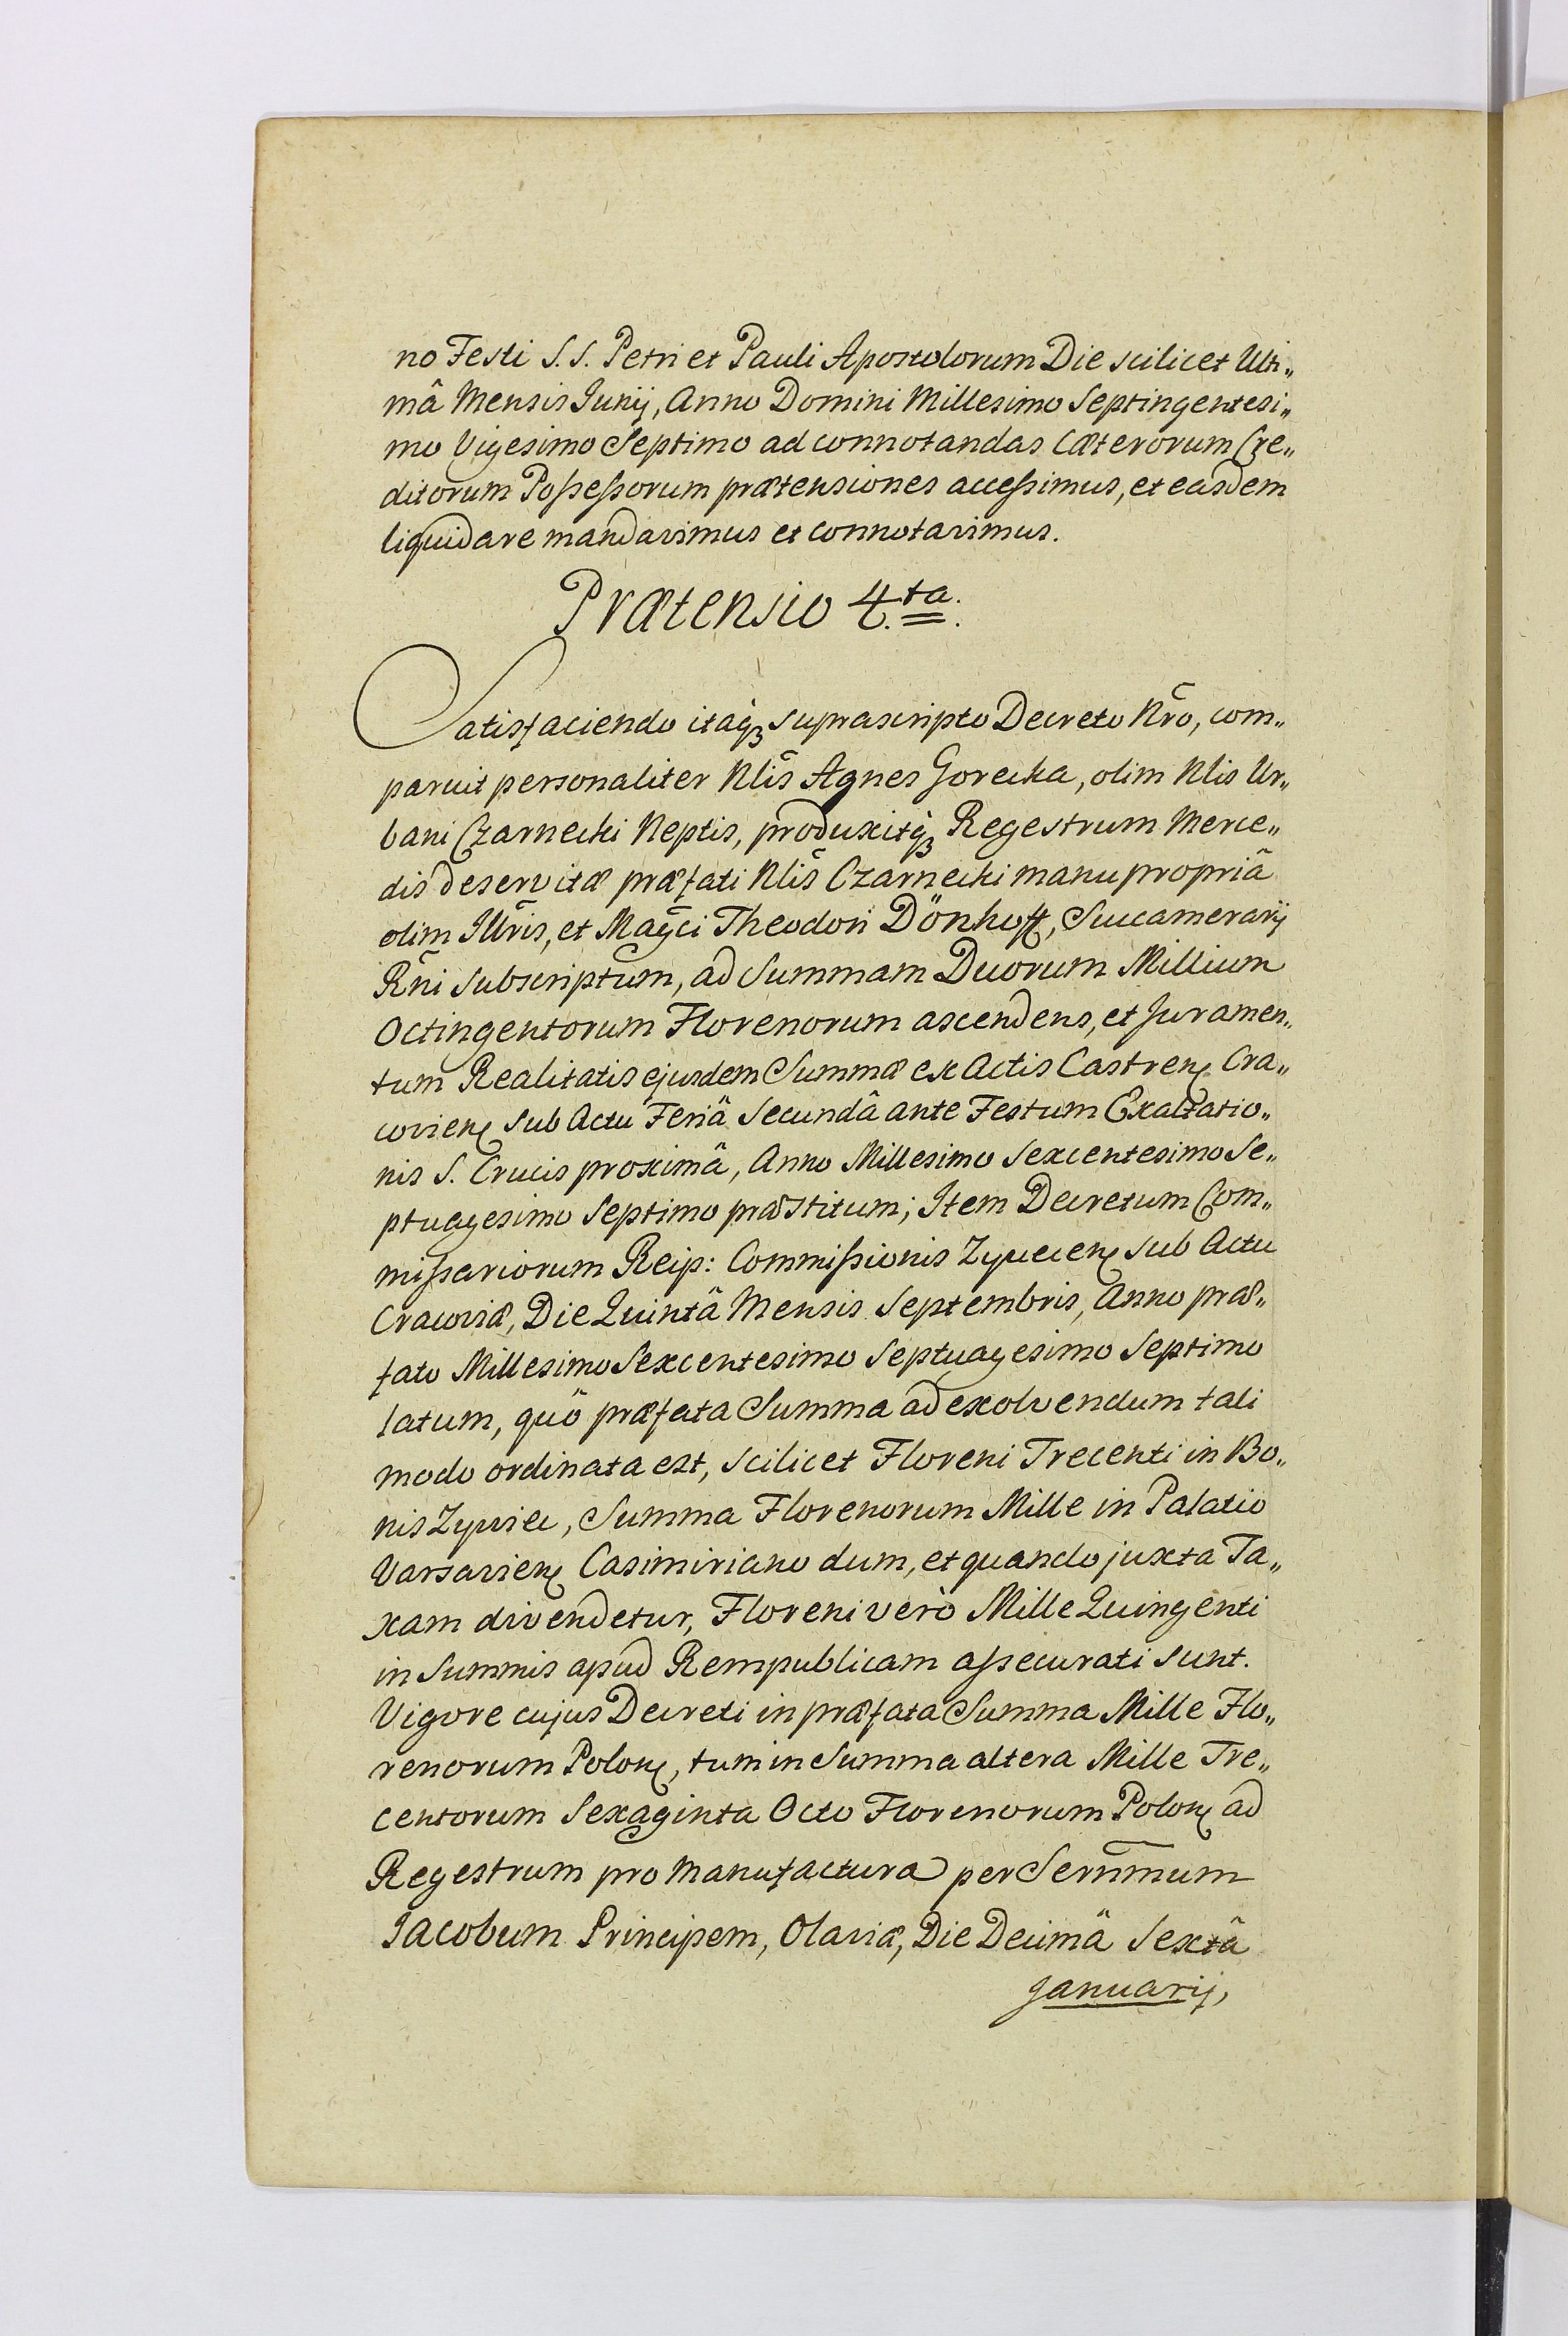 no Festi S.S. Petri et Pauli Apostolorum Die scilicet Ulti„
mâ Mensis Junij, Anno Domini Millesimo Septingentesi„
mo Vigesimo Septimo ad connotandas Cæterorum Cre„
ditorum Possessorum prætensiones accessimus, et easdem
liquidare mandavimus et connotavimus.
Prætensio 4.ta.
Satisfaciendo itaq3 suprascripto Decreto Nr̃o, com„
paruit personaliter Nl̃is Agnes Gorecka, olim Nlis Ur„
bani Czarnecki Neptis, produxitq3 Regestrum Merce„
dis deservitæ præfati Nl̃is Czarnecki manu propriâ
olim Ill̃ris, et Mag̃ci Theodori Dönhoff, Succamerarij
Rñi subscriptum, ad Summam Duorum Millium
Octingentorum Florenorum ascendens, et Juramen„
tum Realitatis ejusdem Summæ ex Actis Castren. Cra„
covien. sub Actu Feriâ Secundâ ante Festum Exaltatio„
nis S. Crucis proximâ, Anno Millesimo Sexcentesimo Se„
ptuagesimo Septimo præstitum; Item Decretum Com„
missariorum Reip: Commissionis Zyviecen. sub Actu
Cracoviæ, Die Quintâ Mensis Septembris, Anno præ„
fato Millesimo Sexcentesimo Septuagesimo Septimo
latum, quô præfata Summa ad exolvendum tali
modo ordinata est, scilicet Floreni Trecenti in Bo„
nis Zywiec, Summa Florenorum Mille in Palatio
Varsavien. Casimiriano dum, et quando juxta Ta„
xam divendetur, Floreni verò Mille Quingenti
in Summis apud Rempublicam assecurati sunt.
Vigore cujus Decreti in præfata Summa Mille Flo„
renorum Polon., tum in Summa altera Mille Tre„
centorum Sexaginta Octo Florenorum Polon. ad
Regestrum pro Manufactura per Serñmum
Jacobum Principem, Olaviæ, Die Decimâ Sextâ
Januarij,